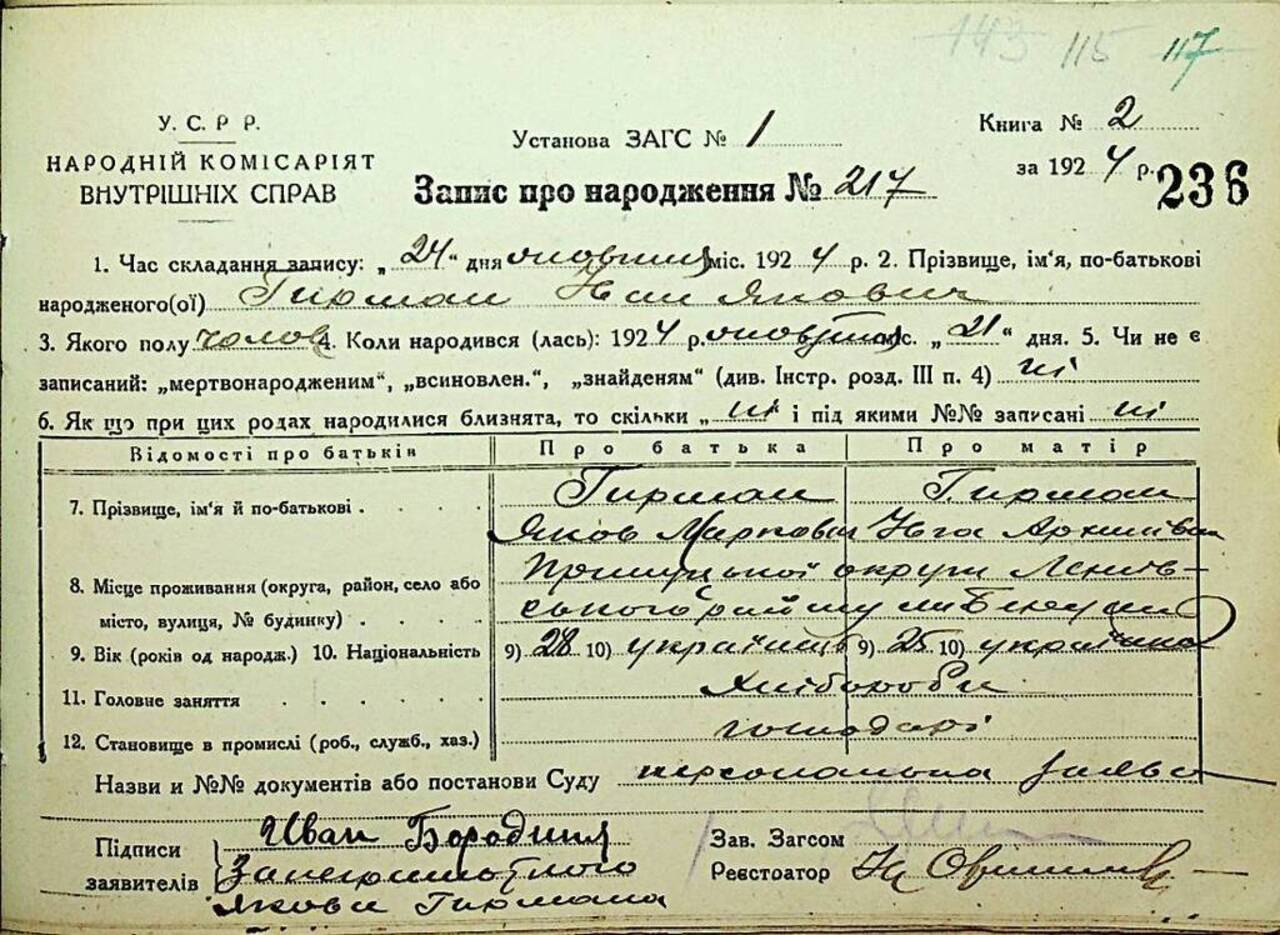 143 115 117
У. С. Р Р.
НАРОДНІЙ КОМІСАРІЯТ
ВНУТРІШНІХ СПРАВ
Установа ЗАГС № 1
Книга № 2
за 1924 р.
236
Запис про народження № 217
1. Час складання запису: „24“ дня міс. 1924 р. 2. Прізвище, ім'я, по-батькові
народженого(ої) Гирман Іван Якович
3. Якого полу чолов 4. Коли народився (лась): 1924 р. міс. „21“ дня. 5. Чи не є
записаний: „мертвонародженим“, „всиновлен.“, „знайденям“ (див. Інстр. розд. III п. 4) ні
6. Як що при цих родах народилися близнята, то скільки „ні і під якими №№ записані ні
Відомості про батьків Про батька Про матір
7. Прізвище, ім'я й по-батькові Гирман Гирман
Яков Маркович
8. Місце проживання (округа, район, село або Прилуцької округи
місто, вулиця, № будинку)
9. Вік (років од народж.) 10. Національність 9) 28 10) українець 9) 25 10) українка
11. Головне заняття Хлібороби
12. Становище в промислі (роб., служб., хаз.) господарі
Назви и №№ документів або постанови Суду персональна заява
Підписи заявителів
Иван Бородиня
За неграмотного
Якова Гирмана
Зав. Загсом
Реєстратор